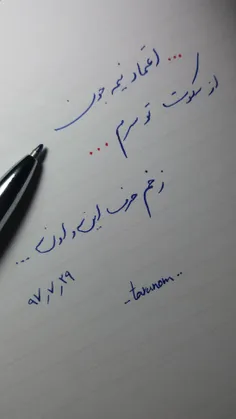 ... اعتماد نیمه جون
از سکوت تو سرم ...
زخم حرف این و اون ...
۹۷٫۷٫۲۹
-- tarannom --